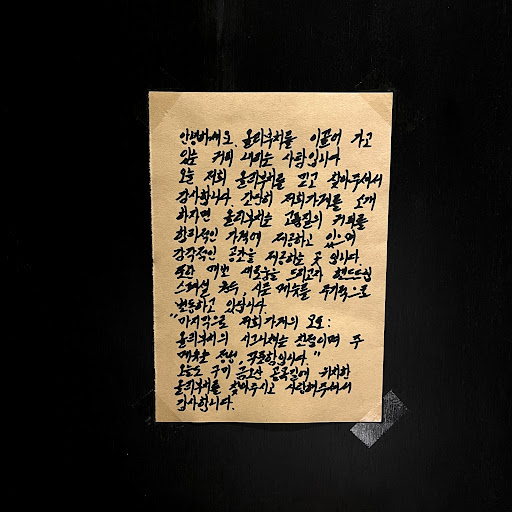 안녕하세요. 올리부처를 이끌어 가고
있는 커피 내리는 사람입니다
오늘 저희 올리부처를 믿고 찾아주셔서
감사합니다. 간단히 저희가게를 소개
하자면 올리부처는 고품질의 커피를
합리적인 가격에 제공하고 있으며
감각적인 공간을 제공하는 곳 입니다.
또한 매번 새로움을 드리고자 핸드드립
스페셜 원두, 시즌 메뉴를 주기적으로
변동하고 있습니다.
"마지막으로 저희가게의 모토:
올리부처의 시그니쳐는 친절이며 주
메뉴는 정성, 입니다."
오늘도 구미 금오산 골목길에 위치한
올리부처를 찾아주시고 사랑해주셔서
감사합니다.